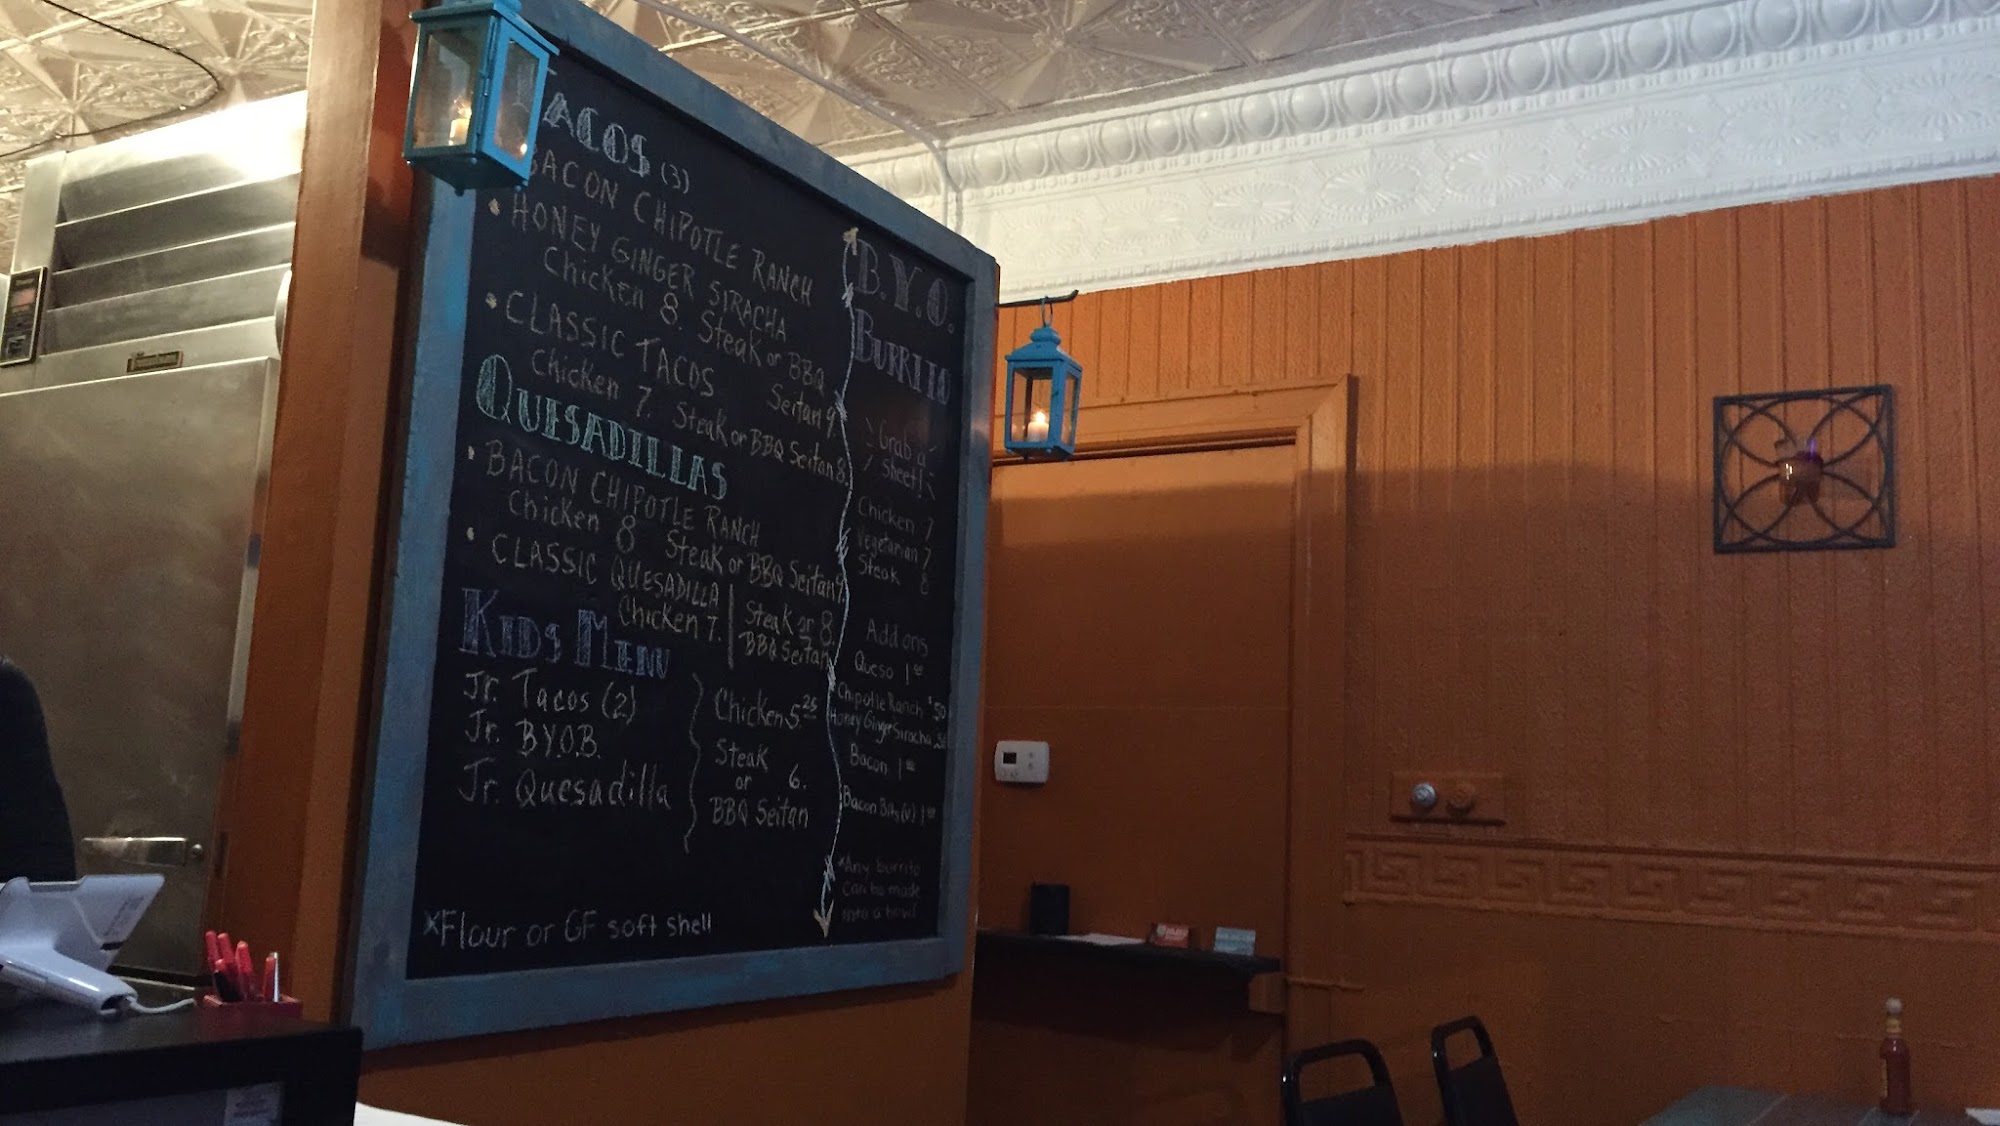 TACOS (3)
BACON CHIPOTLE RANCH
• HONEY GINGER SIRACHA
Chicken 8. Steak or BBQ
Seitan 9.
• CLASSIC TACOS
Chicken 7. Steak or BBQ Seitan 8.
QUESADILLAS
• BACON CHIPOTLE RANCH
Chicken 8 Steak or BBQ Seitan 9.
• CLASSIC QUESADILLA
Chicken 7. Steak or 8.
BBQ Seitan
KIDS MENU
Jr. Tacos (2)
Jr. B.Y.O.B.
Jr. Quesadilla
Chicken 5.25
Steak
or 6.
BBQ Seitan
*Flour or GF soft shell
B.Y.O.
BURRITO
Grab a
Sheet!
Chicken 7
Vegetarian 7
Steak 8
Add ons
Queso 1.00
Chipotle Ranch .50
Honey Ginger Siracha .50
Bacon 1.00
Bacon Bits (v) 1.00
*Any burrito
can be made
into a bowl